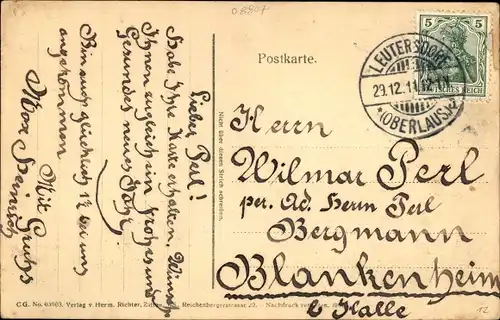 08807
Postkarte.
5
5
DEUTSCHES REICH
LEUTERSDORF
29.12.11.
*(OBERLAUS.)
Lieber Perl!
Habe Ihre Karte erhalten, Wünsche
Ihnen zugleich ein frohes und
Gesundes neues Jahr.
Bin auch glücklich
angekommen
Mit Gruss
Max
Nicht über diesem Strich schreiben.
Herrn
Wilmar Perl
per. Ad. Herrn Perl
Bergmann
Blankenheim
b Halle
C.G. No. Verlag v. Herm. Richter, Reichenbergerstrasse 22. Nachdruck
12